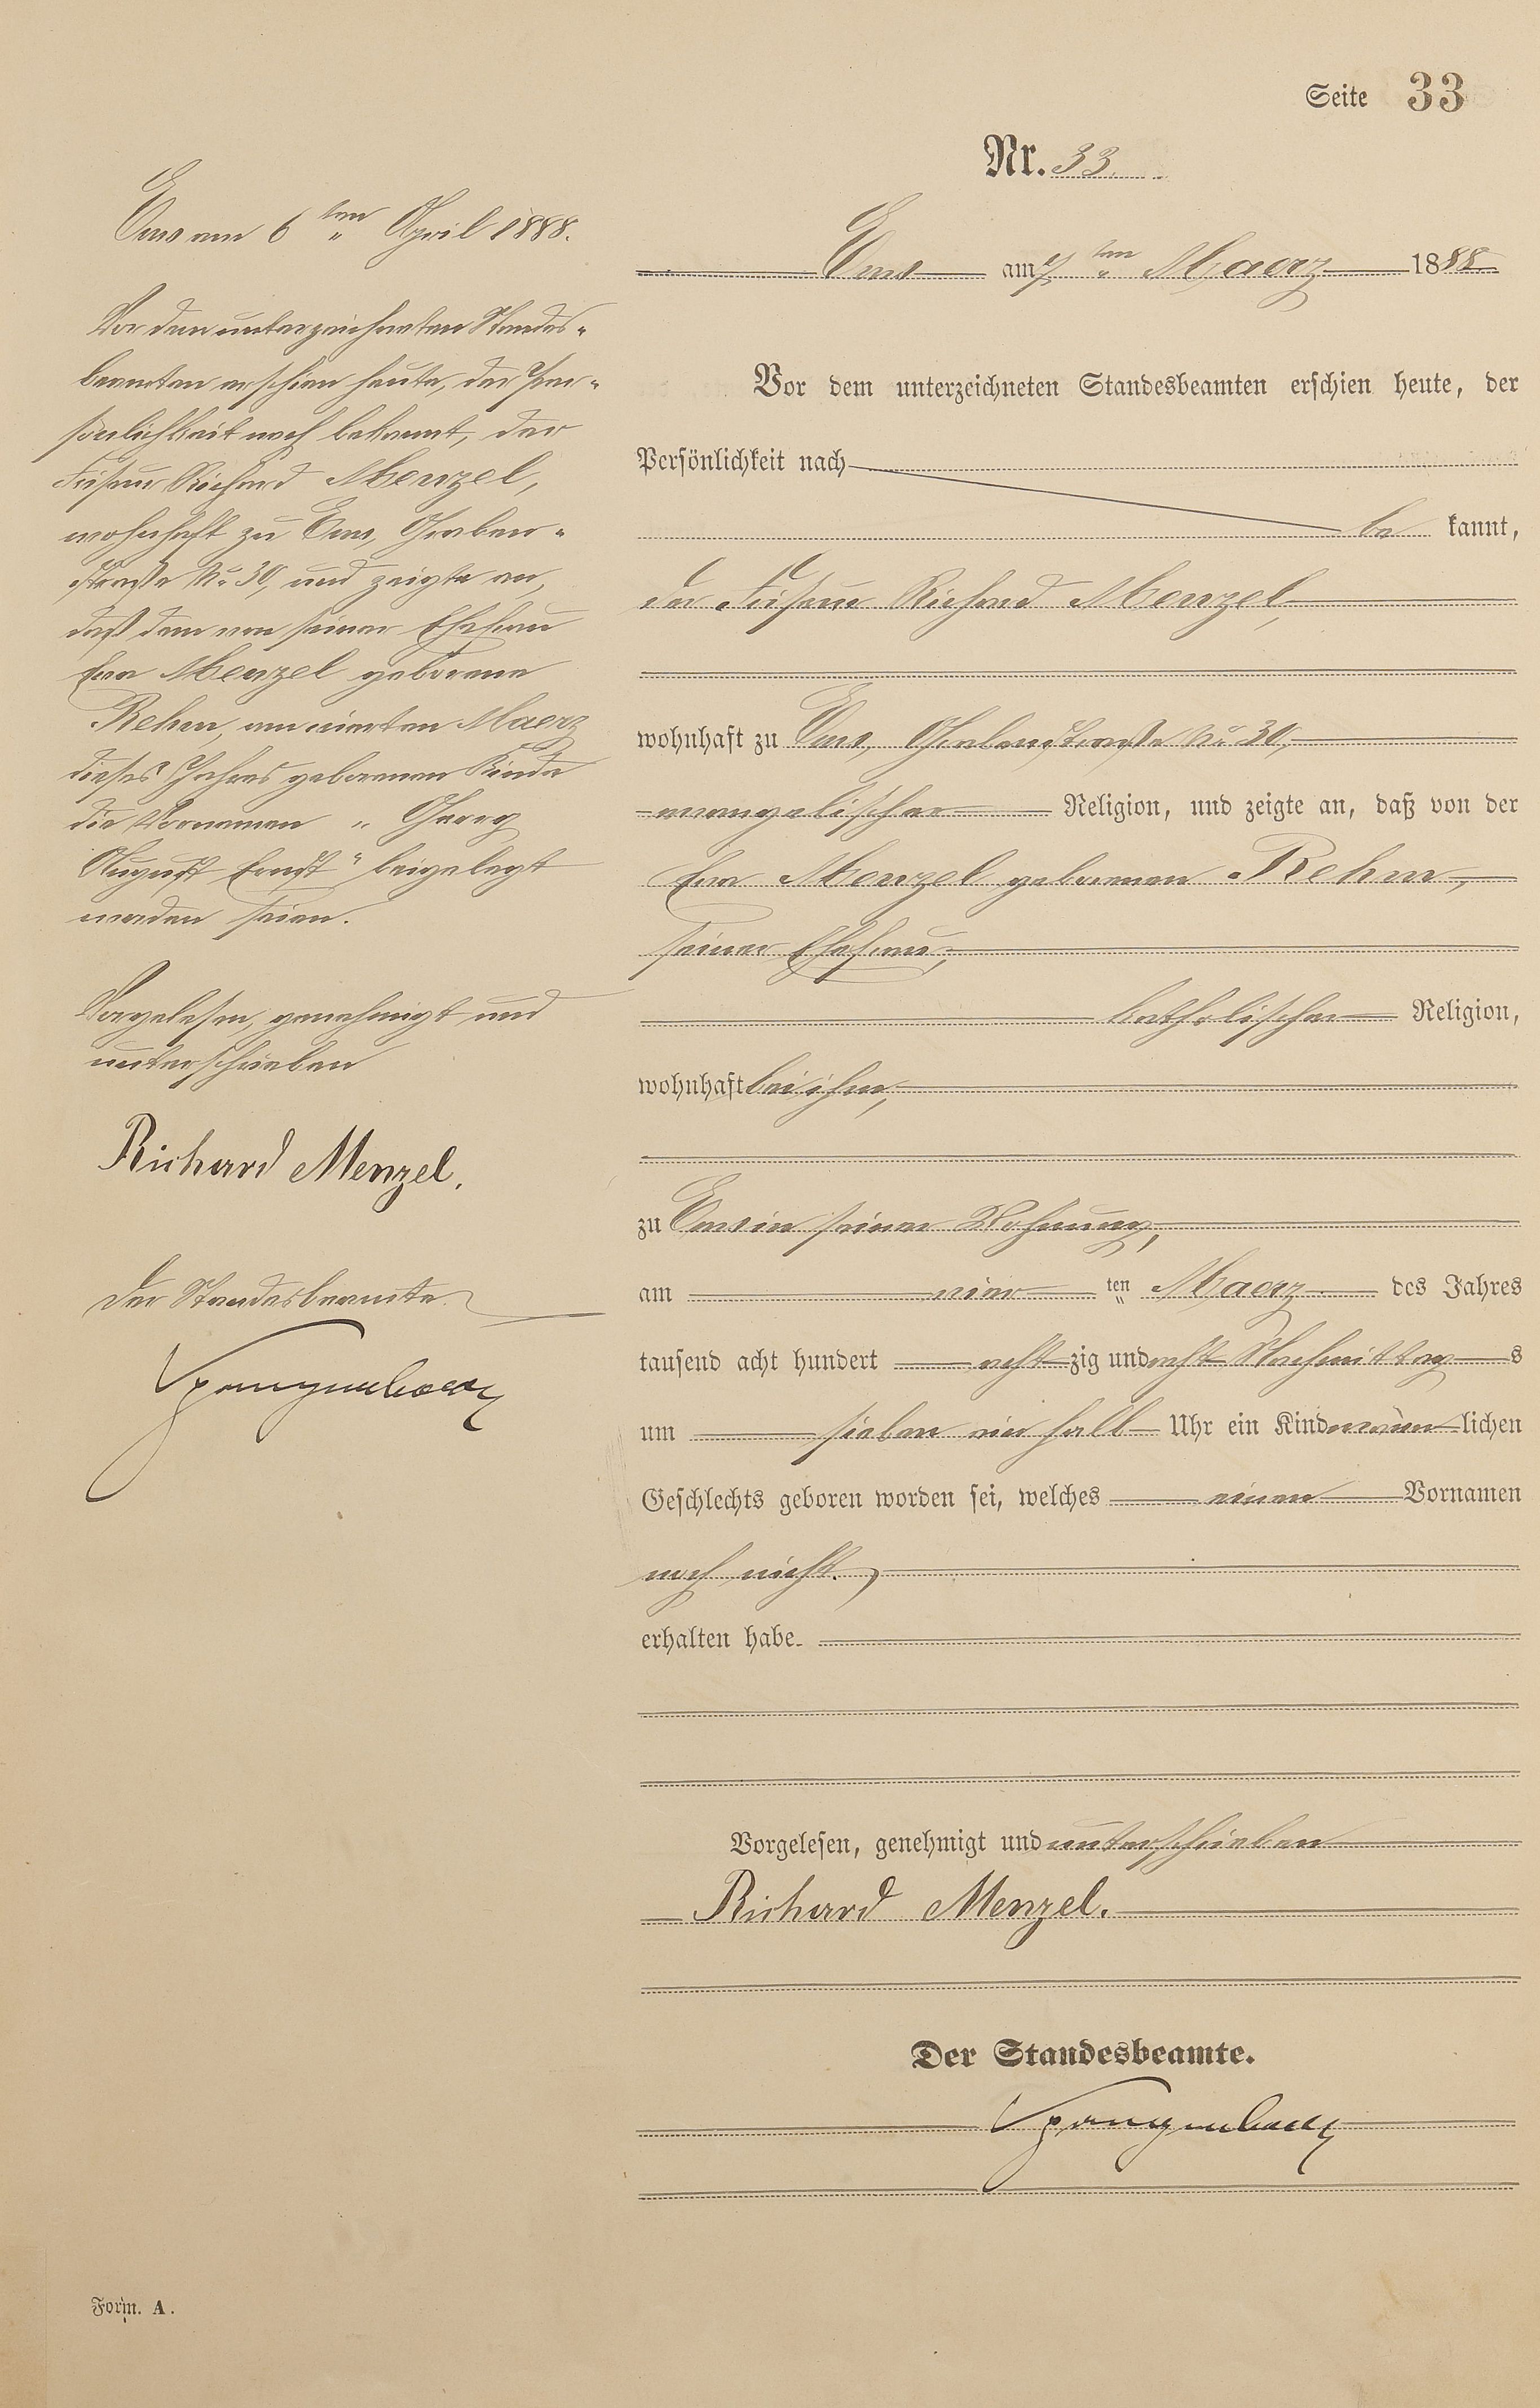 Seite 33
Nr. 33.
Ems am 7ten Maerz 1888
Vor dem unterzeichneten Standesbeamten erschien heute, der
Persönlichkeit nach
be kannt,
der Friseur Richard Menzel,
wohnhaft zu Ems, Grabenstraße No 30,
evangelischer Religion, und zeigte an, daß von der
Eva Menzel geborenen Rehm,
seiner Ehefrau,
katholischer Religion,
wohnhaft bei ihm,
zu Ems in seiner Wohnung,
am vier ten Maerz des Jahres
tausend acht hundert acht zig und acht Nachmittag s
um sieben ein halb Uhr ein Kind männ lichen
Geschlechts geboren worden sei, welches einen Vornamen
noch nicht
erhalten habe.
Vorgelesen, genehmigt und unterschrieben
Richard Menzel.
Der Standesbeamte.
Ems am 6ten April 1888.
Vor dem unterzeichneten Standes-
beamten erschien heute, der Per-
sönlichkeit nach bekannt, der
Friseur Richard Menzel,
wohnhaft zu Ems, Graben-
straße No 30, und zeigte an,
daß dem von seiner Ehefrau
Eva Menzel geborene
Rehm, am vierten Maerz
dieses Jahres geborenen Kinde
die Vornamen „Georg
August Ernst" beigelegt
worden seien.
Vorgelesen, genehmigt und
unterschrieben
Richard Menzel.
Der Standesbeamte.
Form. A.